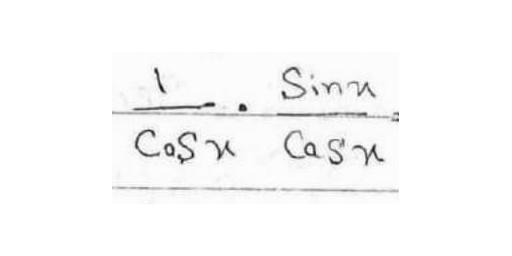 \frac{1}{\cos x} \cdot \frac{\sin x}{\cos x} =